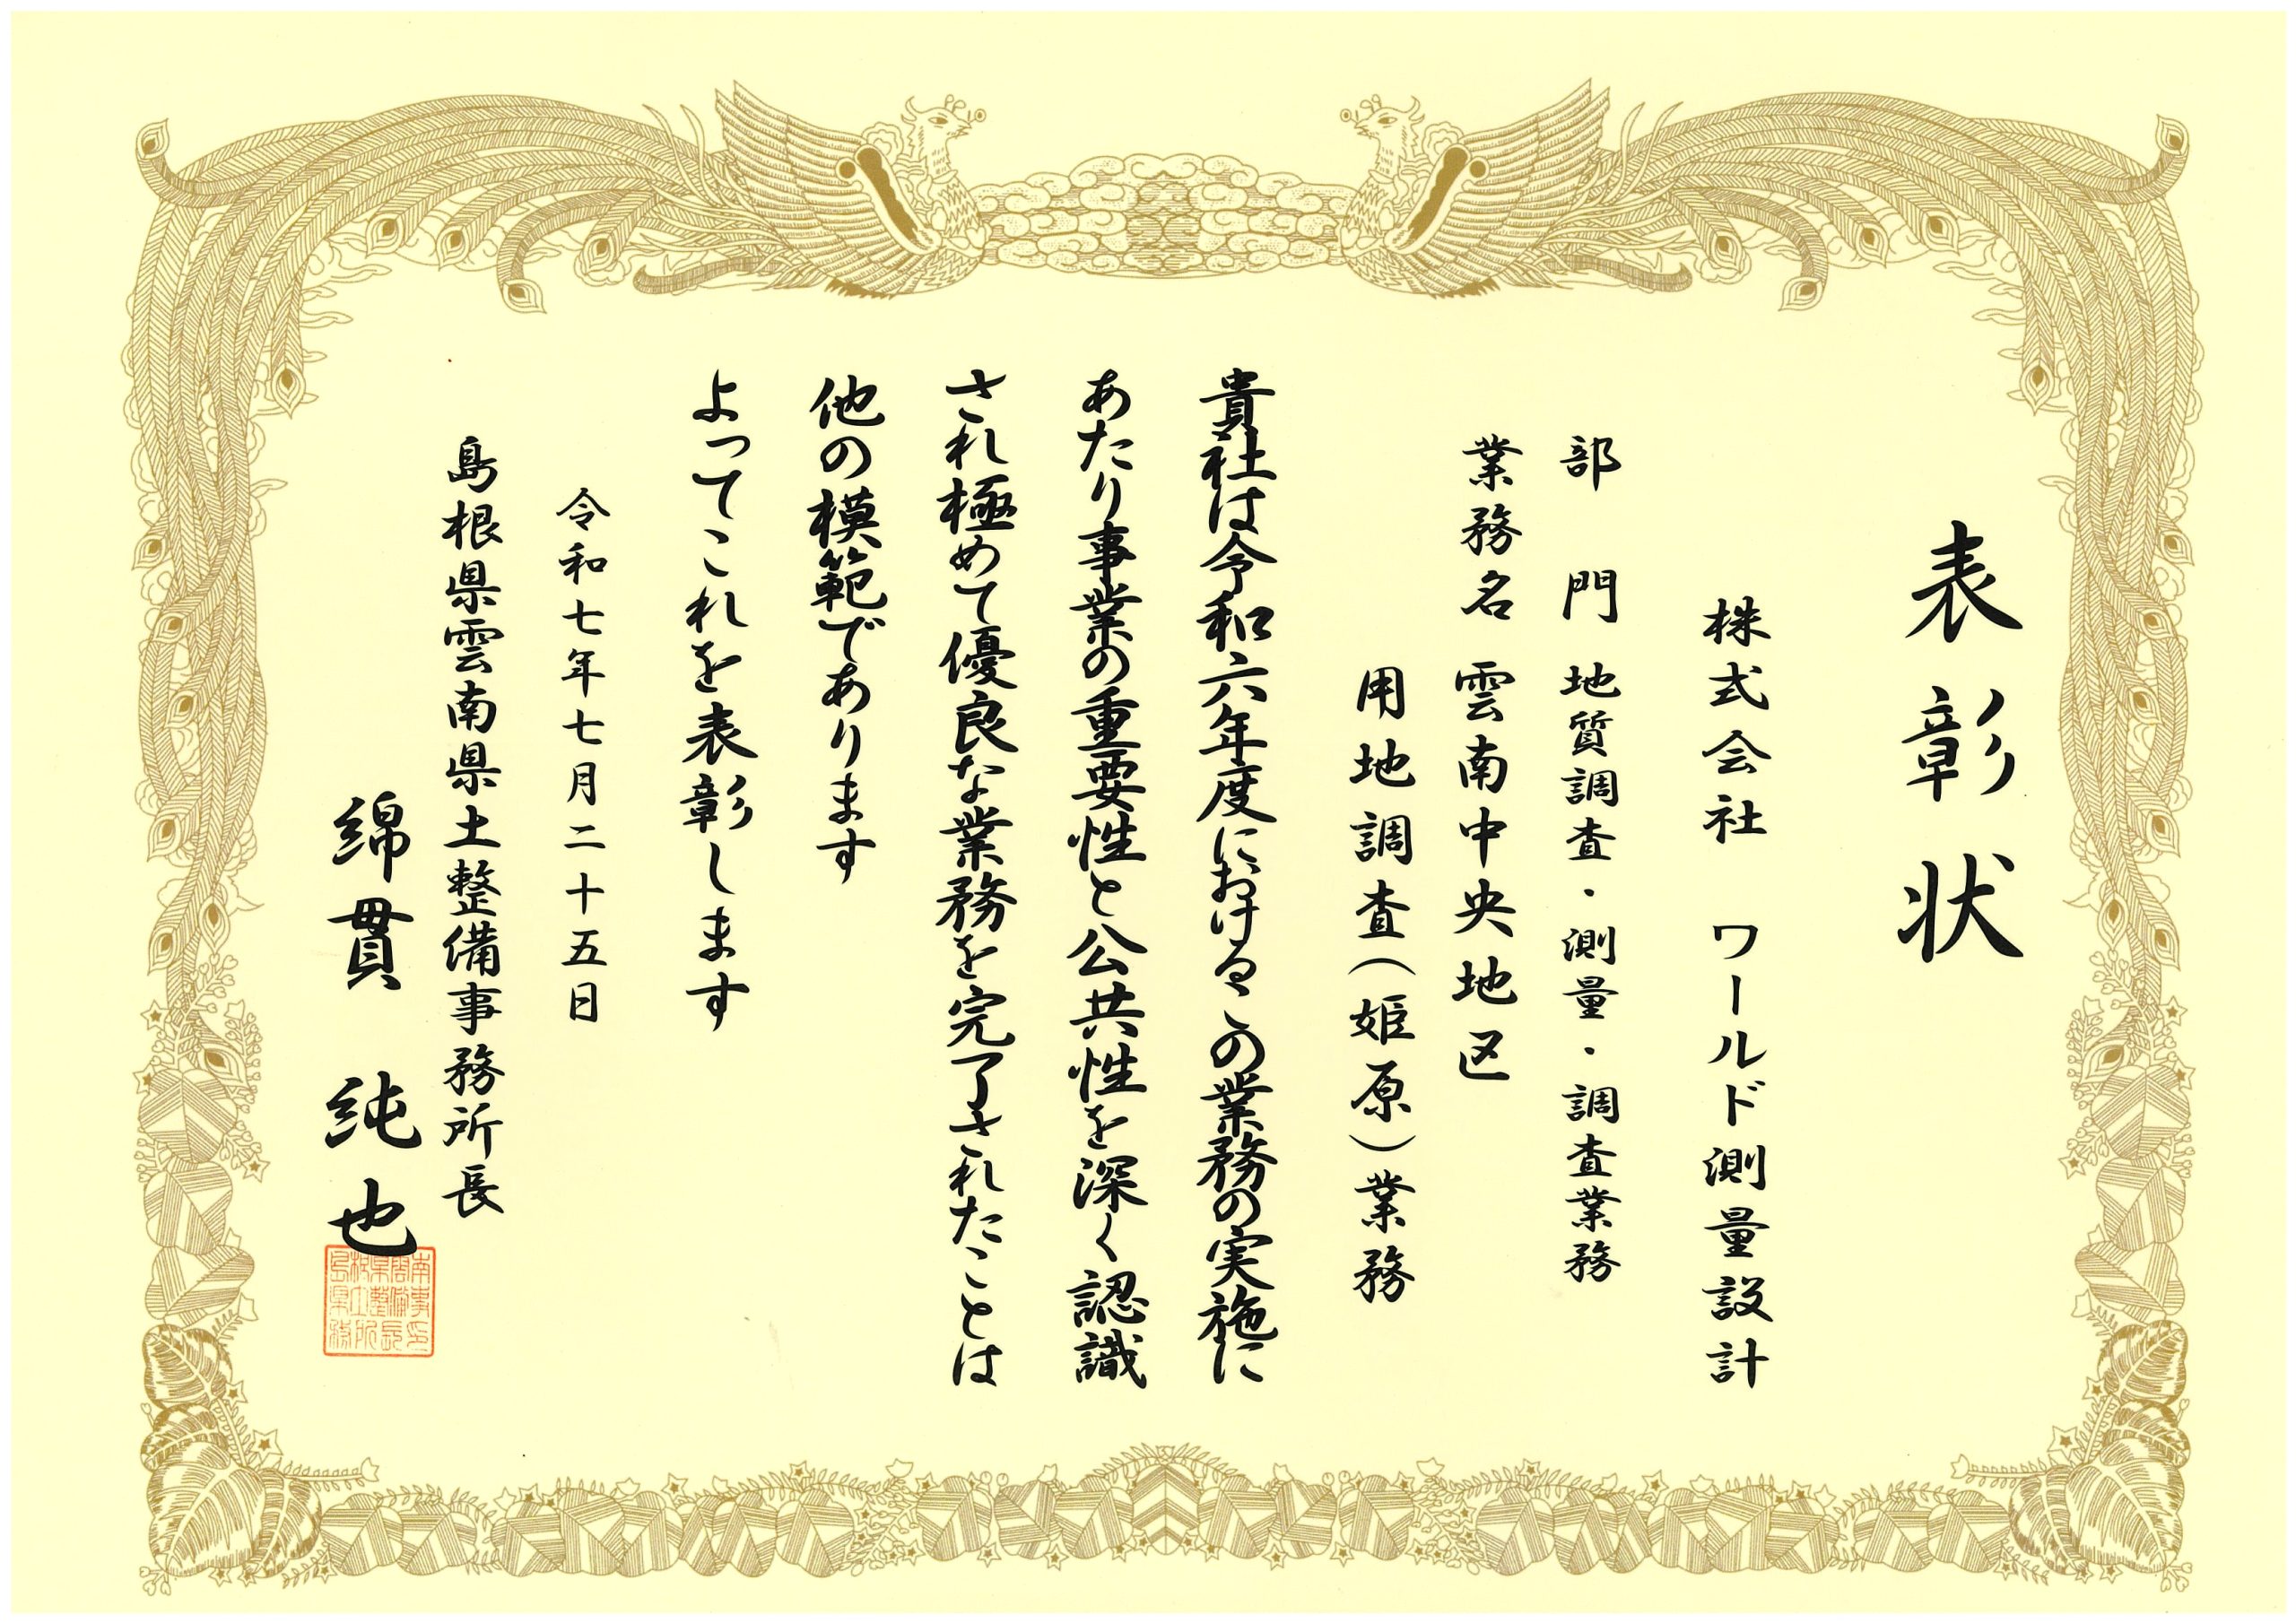 表彰状
株式会社 ワールド測量設計
部門 地質調査・測量・調査業務
業務名 雲南中央地区
用地調査(姫原)業務
貴社は令和六年度におけるこの業務の実施に
あたり事業の重要性と公共性を深く認識
され極めて優良な業務を完了されたことは
他の模範であります
よってこれを表彰します
令和七年七月二十五日
島根県雲南県土整備事務所長
綿貫 純也